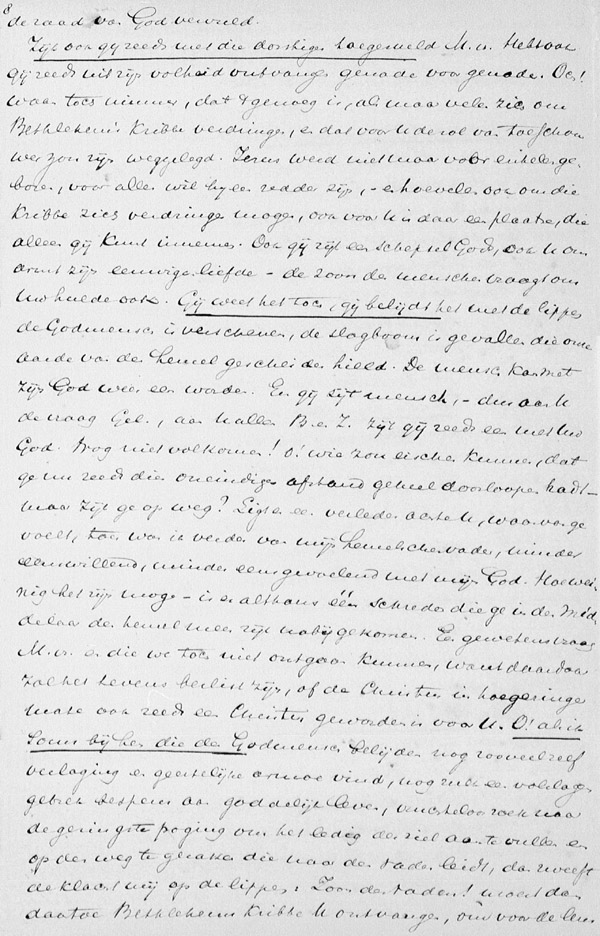 8
de raad van God vervuld.
Zijt ook gij reeds met die dorstigen toegesneld M. v. Hebt ook
gij reeds uit zijn volheid ontvangen genade voor genade. Och!
waan toch nimmer, dat 't genoeg is, als maar velen zich om
Bethlehem's Kribbe verdringen, en dat voor U de rol van toeschou
wer zou zijn weggelegd. Jezus werd niet maar voor enkelen ge-
boren, voor allen wil hij een redder zijn, - en hoevelen ook om die
Kribbe zich verdringen mogen, ook voor U is daar een plaatse, die
alleen gij kunt innemen. Ook gij zijt een schepsel Gods, ook U om
armt zijn eeuwige liefde - de zoon des menschen vraagt om
Uw hulde ook. Gij weet het toch, gij belijdt het met de lippen
de Godmensch is verschenen, de slagboom is gevallen die onze
aarde van den hemel gescheiden hield. De mensch kan met
zijn God weer een worden. En gij zijt mensch, - dus aan U
de vraag Gel., aan U allen B. e. Z. zijt gij reeds een met Uw
God. Nog niet volkomen! o! wie zou eischen kunnen, dat
ge nu reeds dien oneindigen afstand geheel doorloopen hadt -
maar zijt ge op weg? Ligt er een verleden achter U, waarvan ge
voelt, toen was ik verder van mijn hemelschen vader, minder
eenswillend, minder eensgevoelend met mijn God. Hoe wei-
nig het zijn moge - is er althans één schrede die ge in den Mid
delaar den hemel meer zijt nabij gekomen. Een gewetensvraag
M. v. en die we toch niet ontgaan kunnen, want daardoor
zal het tevens beslist zijn, of de Christus in hoe geringe
mate ook reeds een Christus geworden is voor U. O! als ik
soms bij hen die den Godmensch belijden nog zooveel zelf
verlaging en geestelijke armoe vind, nog zulk een volslagen
gebrek aan goddelijk leven, vruchteloos zoek naar
de geringste poging om het ledig der ziel aan te vullen en
op den weg te geraken die naar den vader leidt, dan zweeft
de klacht mij op de lippen: Zoon des Vaders! moest dan
daartoe Bethlehems Kribbe U ontvangen, om voor de leus